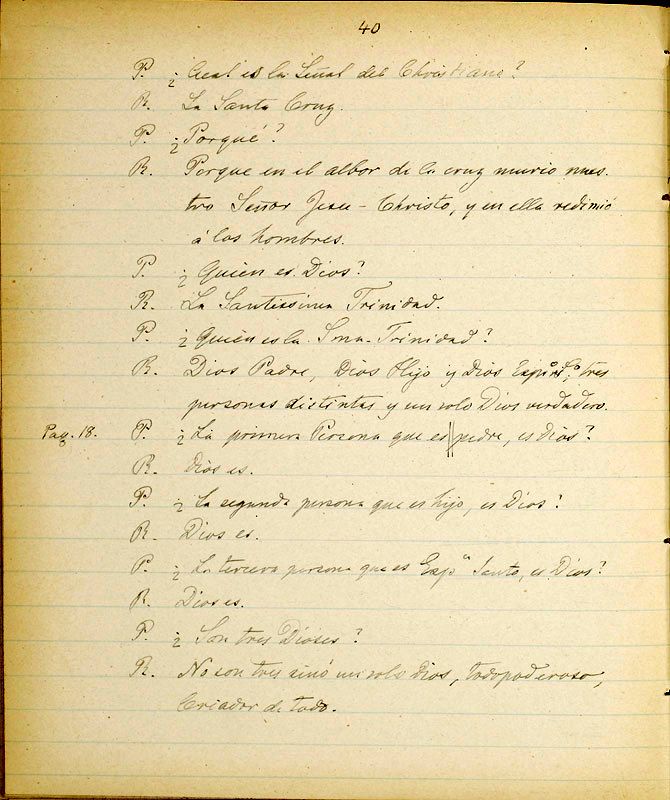 40
P. ¿Cual es la Señal del Christiano?
R. La Santa Cruz.
P. ¿Porqué?
R. Porque en el albor de la cruz murio nues-
tro Señor Jesu-Christo, y en ella redimió
á los hombres.
P. ¿Quién es Dios?
R. La Santissima Trinidad.
P. ¿Quién es la Sma. Trinidad?
R. Dios Padre, Dios Hijo y Dios Espu Sto, tres
personas distintas y un solo Dios verdadero.
Pag. 18. P. ¿La primera Persona que es padre, es Dios?
R. Dios es.
P. ¿La segunda persona que es hijo, es Dios?
R. Dios es.
P. ¿La tercera persona que es Espu Santo, es Dios?
R. Dios es.
P. ¿Son tres Dioses?
R. No son tres sinó un solo Dios, todopoderoso,
Criador de todo.